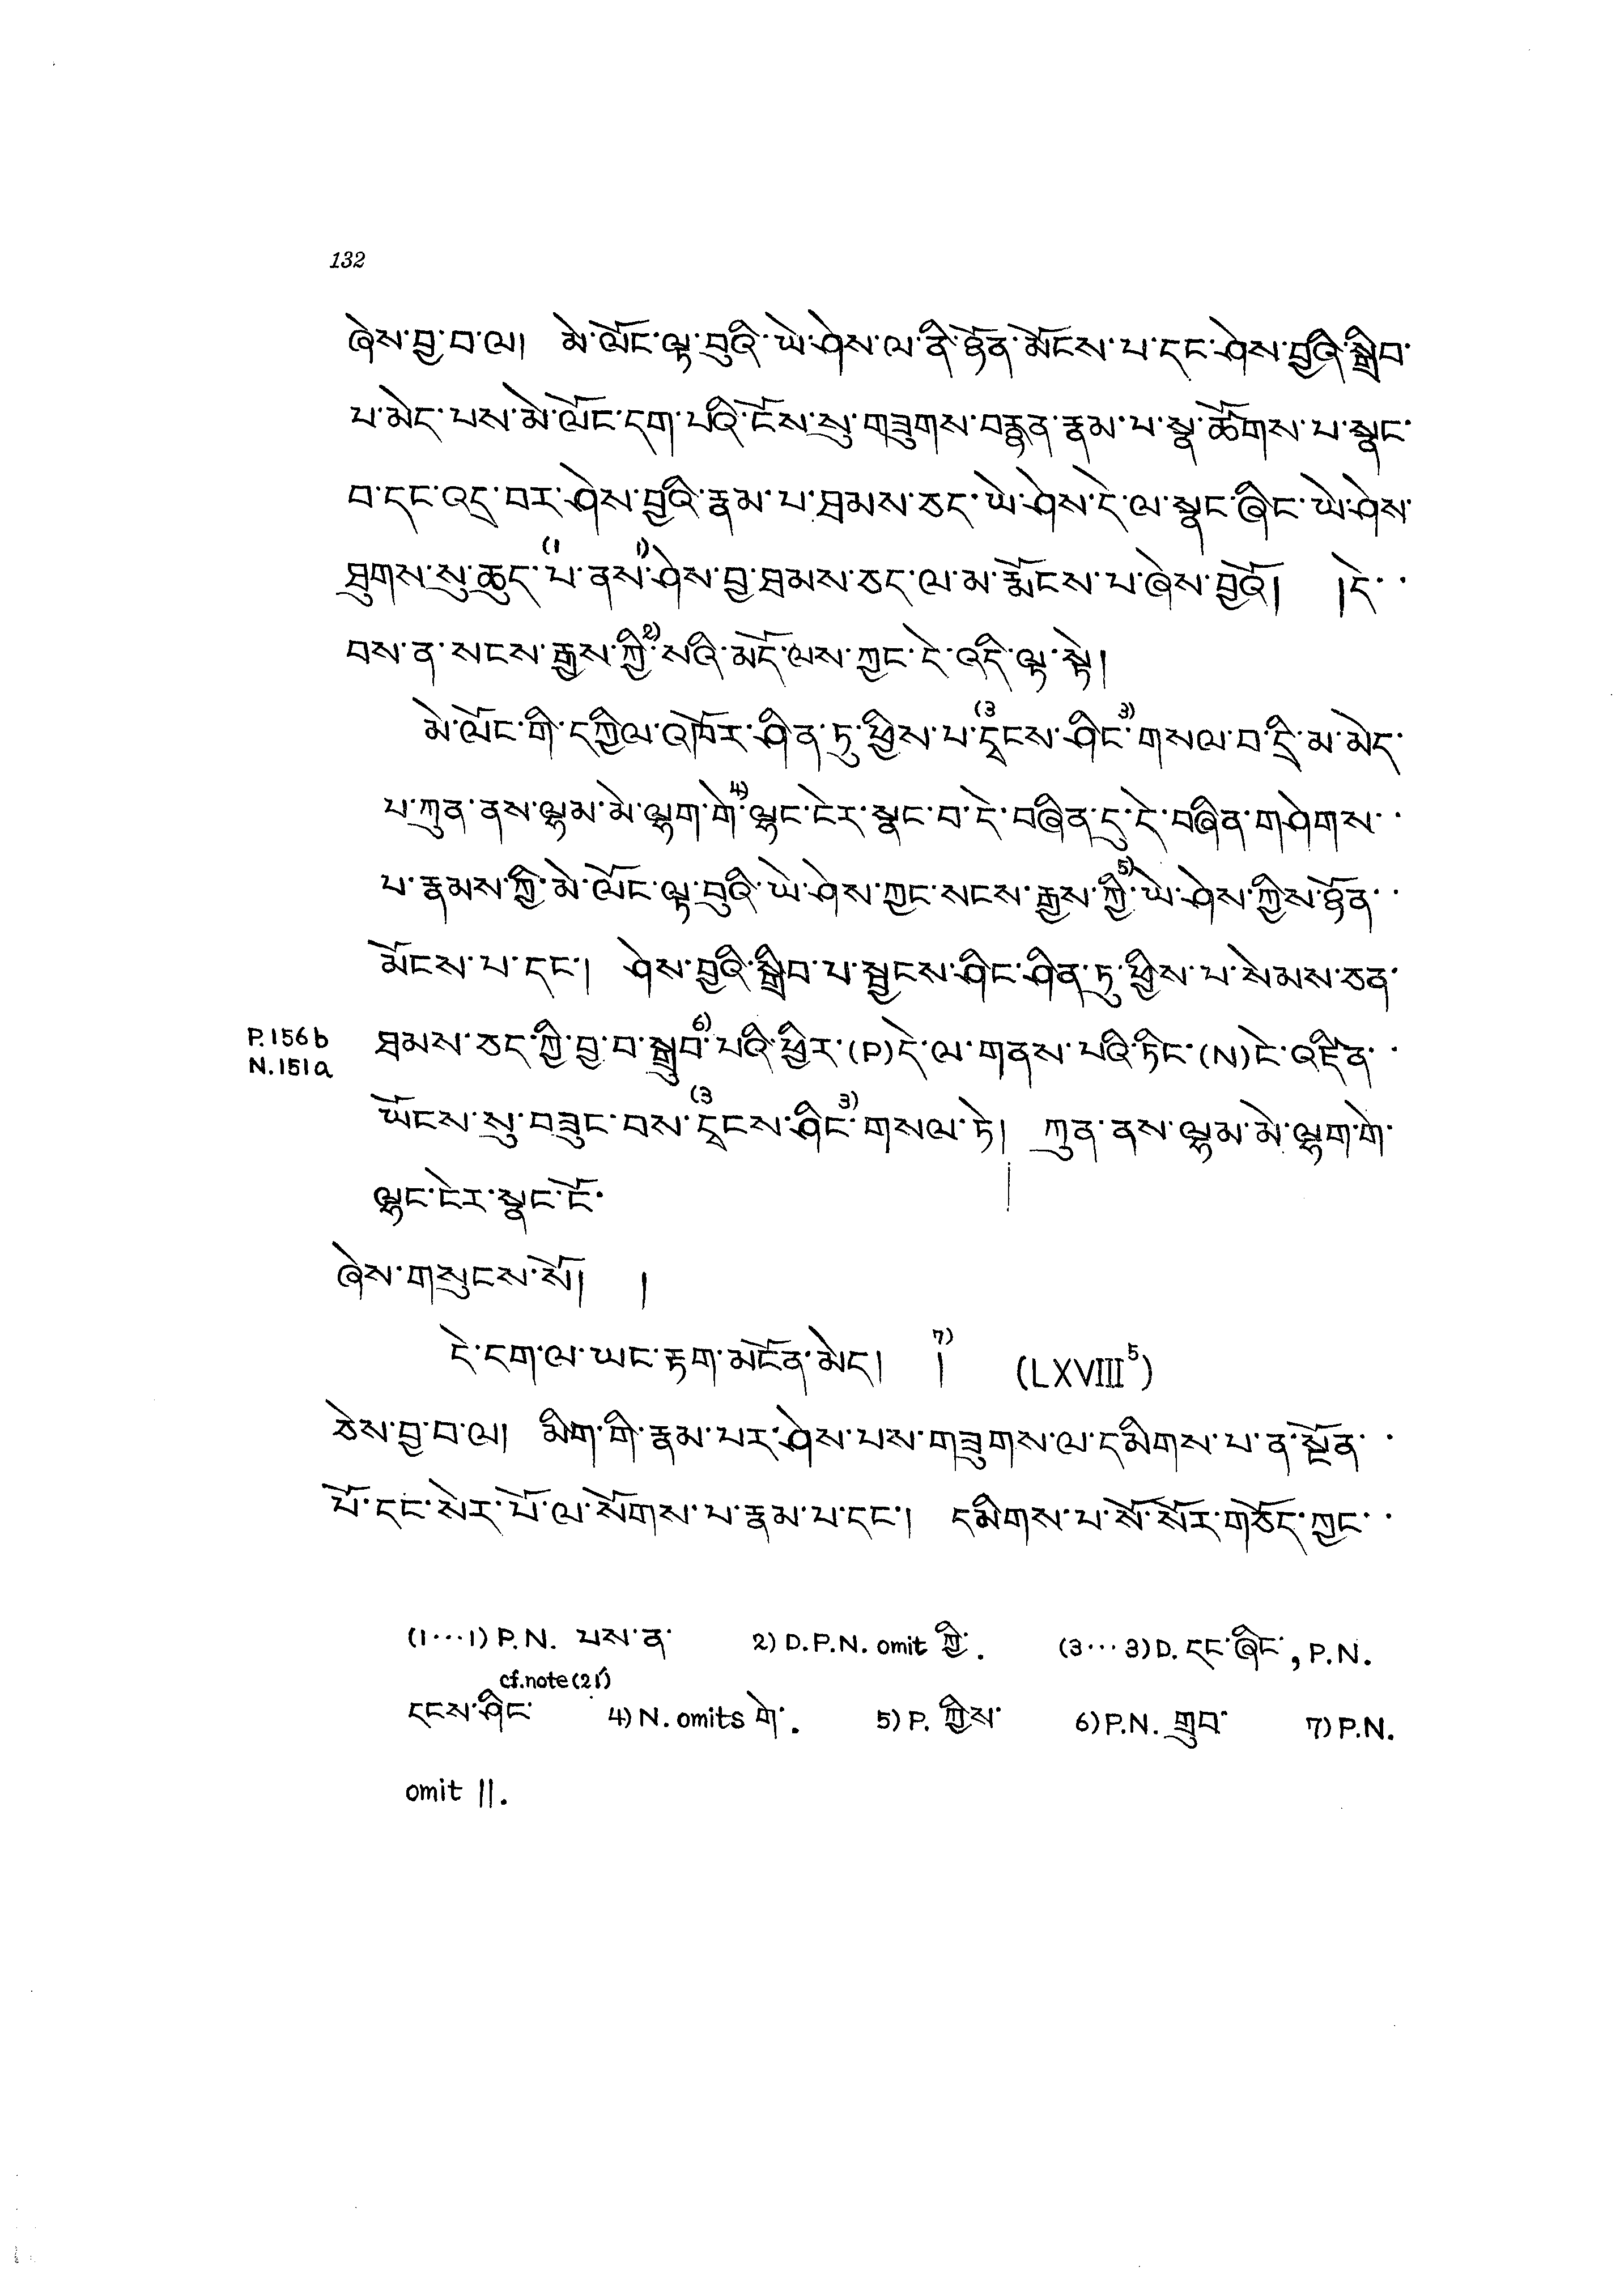 132
ཞེས་བྱ་བ་ལ། མེ་ལོང་ལྟ་བུའི་ཡེ་ཤེས་ལ་ནི་ཉོན་མོངས་པ་དང་ཤེས་བྱའི་སྒྲིབ་
པ་མེད་པས་མེ་ལོང་དག་པའི་ངོས་སུ་གཟུགས་བརྙན་རྣམ་པ་སྣ་ཚོགས་པ་སྣང་
བ་དང་འདྲ་བར་ཤེས་བྱའི་རྣམ་པ་ཐམས་ཅད་ཡེ་ཤེས་དེ་ལ་སྣང་ཞིང་ཡེ་ཤེས་
ཐུགས་སུ་ཆུད་(1པ་ནས་1)ཤེས་བྱ་ཐམས་ཅད་ལ་མ་རྨོངས་པ་ཞེས་བྱའོ། །དེ་··
བས་ན་སངས་རྒྱས་ཀྱི་2)སའི་མདོ་ལས་ཀྱང་དེ་འདི་ལྟ་སྟེ།
མེ་ལོང་གི་དཀྱིལ་འཁོར་ཤིན་ཏུ་ཕྱིས་པ་(3དྭངས་ཤིང་3)གསལ་བ་དྲི་མ་མེད་
པ་ཀུན་ནས་ལྷམ་མེ་ལྷག་གེ་4)ལྷང་ངེར་སྣང་བ་དེ་བཞིན་དུ་དེ་བཞིན་གཤེགས་··
པ་རྣམས་ཀྱི་མེ་ལོང་ལྟ་བུའི་ཡེ་ཤེས་ཀྱང་སངས་རྒྱས་ཀྱི་5)ཡེ་ཤེས་ཀྱིས་ཉོན་··
མོངས་པ་དང་། ཤེས་བྱའི་སྒྲིབ་པ་སྦྱངས་ཤིང་ཤིན་ཏུ་ཕྱིས་པ་སེམས་ཅན་
P.156b ཐམས་ཅད་ཀྱི་བྱ་བ་སྒྲུབ་6)པའི་ཕྱིར་(P)དེ་ལ་གནས་པའི་ཏིང་(N)ངེ་འཛིན་··
N.151a
ཡོངས་སུ་བཟུང་བས་(3དྭངས་ཤིང་3)གསལ་ཏེ། ཀུན་ནས་ལྷམ་མེ་ལྷག་གེ་
ལྷང་ངེར་སྣང་ངོ་
ཞེས་གསུངས་སོ། །
དེ་དག་ལ་ཡང་རྟག་མངོན་མེད། །7) (LXVIII5)
ཅེས་བྱ་བ་ལ། མིག་གི་རྣམ་པར་ཤེས་པས་གཟུགས་ལ་དམིགས་པ་ན་སྔོན་··
པོ་དང་སེར་པོ་ལ་སོགས་པ་རྣམ་པ་དང་། དམིགས་པ་སོ་སོར་གཅོད་ཀྱང་··
(1···1) P.N. པས་ན་ 2) D.P.N. omit ཀྱི་. (3···3) D. དང་ཞིང་, P.N.
cf.note(21)
དངས་ཤིང་ 4) N. omits གེ་. 5) P. ཀྱིས་ 6) P.N. གྲུབ་ 7) P.N.
omit ||.